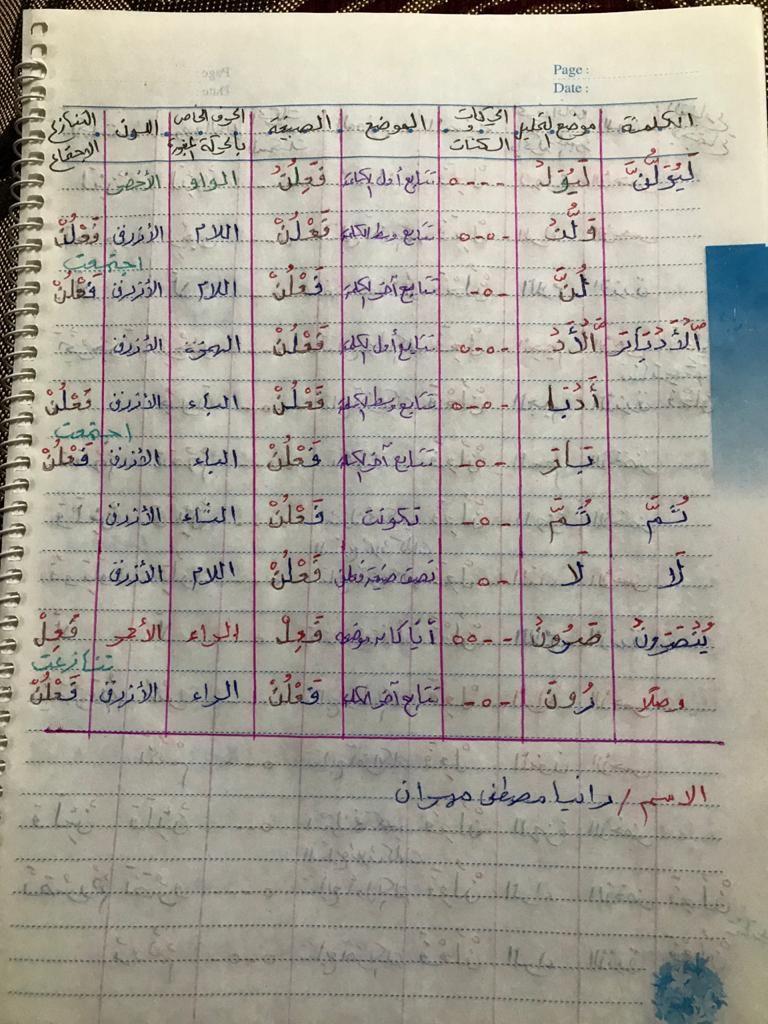 Page :
Date :
الكلمة موضع التحليل الحركات و السكنات الموضع الصيغة الحرف الخاص اللون التنازع
الاجتماع
لَيُوَلُّنَّ لَيُوَلْ ---ه تتابع أول الكلمة فَعِلُنْ الواو الأخضر
وَلُّنْ -ه-ه تتابع وسط الكلمة فَعْلُنْ اللام الأزرق فَعْلُنْ
اجتمعت
لُنَّ -ه- تتابع آخر الكلمة فَعْلُنْ اللام الأزرق فَعْلُنْ
الْأَدْبَارَ الْأَدْ -ه-ه تتابع أول الكلمة فَعْلُنْ الهمزة الأزرق
أَدْبَا -ه-ه تتابع وسط الكلمة فَعْلُنْ الباء الأزرق فَعْلُنْ
اجتمعت
بَارَ -ه- تتابع آخر الكلمة فَعْلُنْ الباء الأزرق فَعْلُنْ
ثُمَّ ثُمَّ -ه- تكونت فَعْلُنْ الثاء الأزرق
لَا لَا -ه نصف صيغة فعلن فَعْلُنْ اللام الأزرق
يُنْصَرُونَ صَرُونْ --هه أيا كا نه موضعه فَعِلْ الراء الأحمر فَعِلْ
تنازعت
وصلًا رُونَ -ه- تتابع آخر الكلمة فَعْلُنْ الراء الأزرق فَعْلُنْ
الاسم / رانيا مصطفى مهران